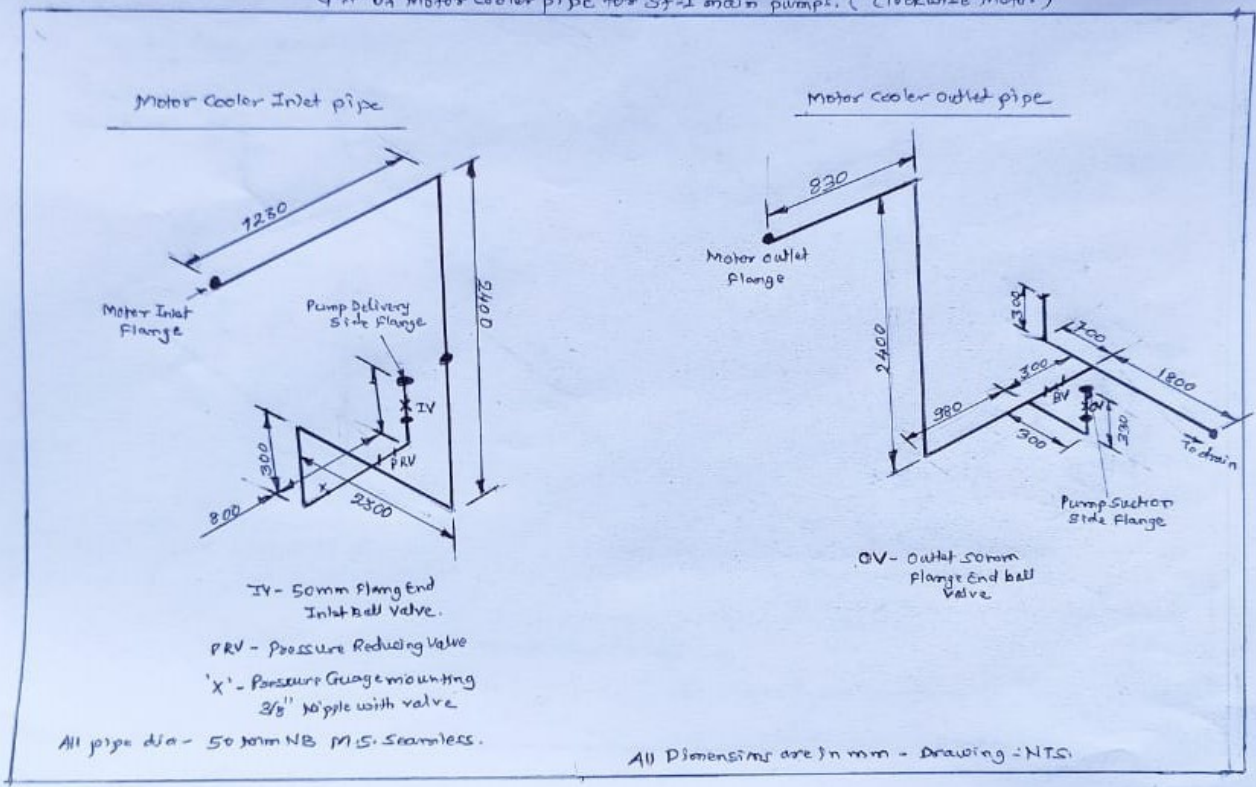 of Motor Cooler pipe for SJ-I main pumps. ( Clockwise Motor )
Motor Cooler Inlet pipe
1230
2400
Motor Inlet
Flange
Pump Delivery
Side Flange
IV
PRV
300
x
2300
800
IV - 50mm Flang End
Inlet Ball Valve.
PRV - Pressure Reducing Valve
'X' - Pressure Guage mounting
3/8" Nipple with valve
All pipe dia - 50 mm NB M.S. Seamless.
Motor Cooler outlet pipe
830
Motor outlet
flange
2400
300
700
300
1800
980
BV
OV
330
300
To drain
Pump Suction
Side Flange
OV - Outlet 50mm
Flange End ball
Valve
All Dimensins are in mm - Drawing - NTS.